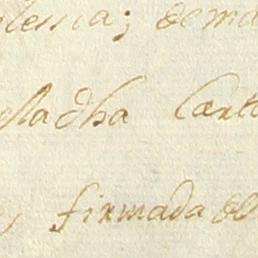 plessia; de ma
stadha Carta
, firmada de